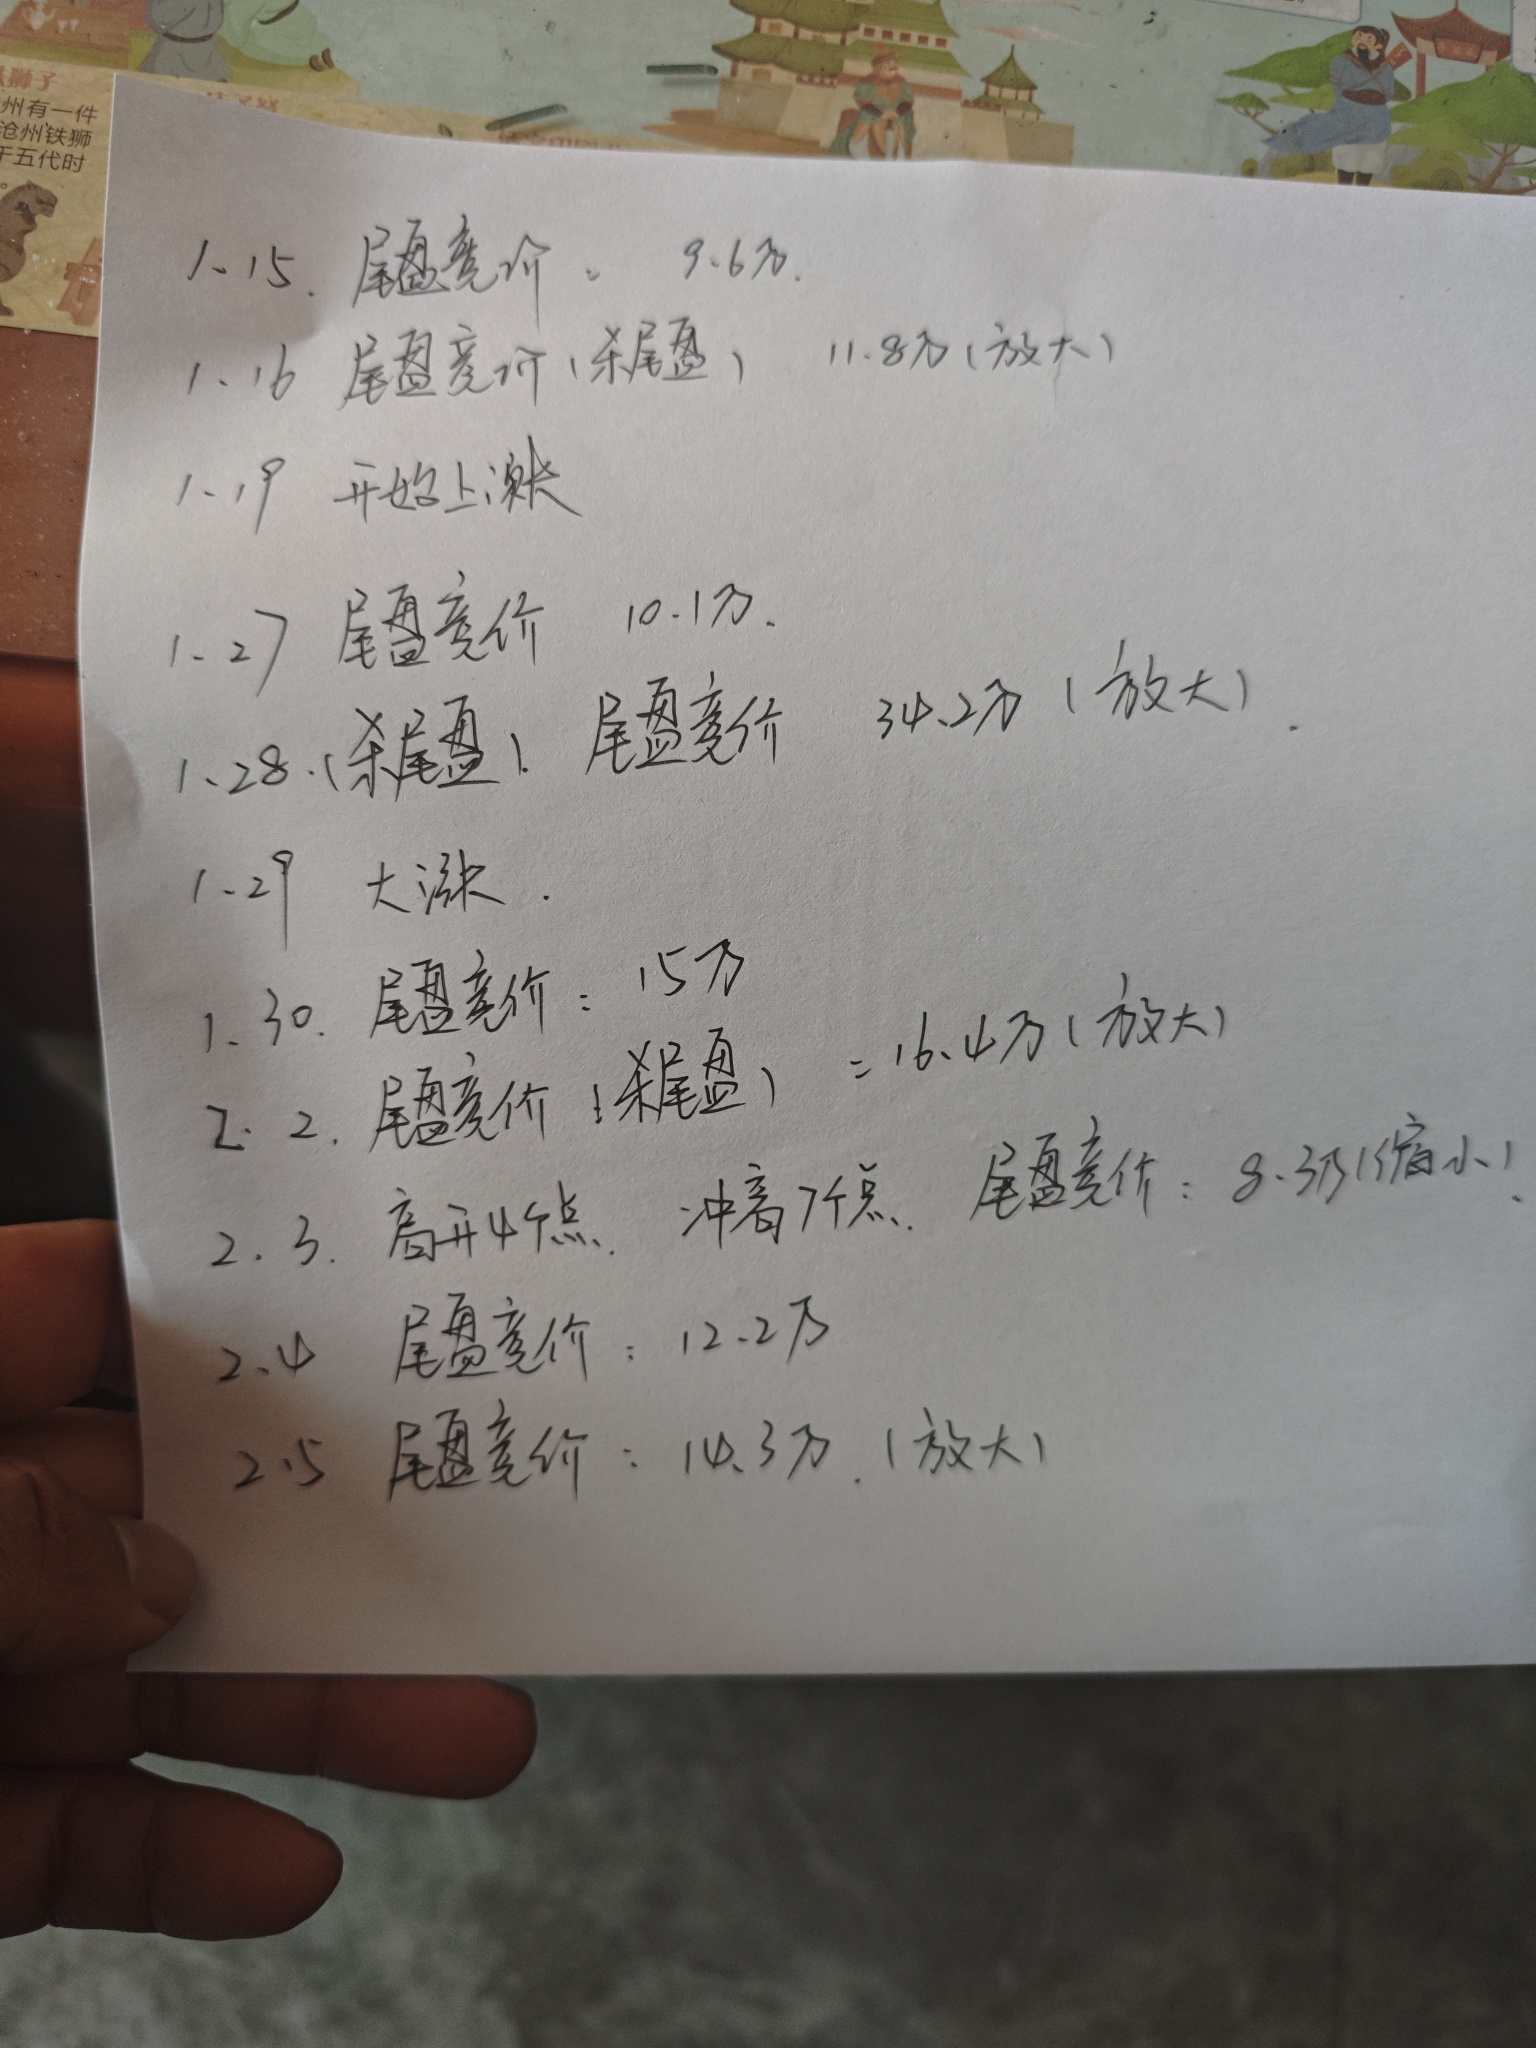 狮子
州有一件
沧州铁狮
于五代时
1.15. 尾盘竞价: 9.6万.
1.16 尾盘竞价(杀尾盘) 11.8万(放大)
1.19 开始上涨
1.27 尾盘竞价 10.1万.
1.28.(杀尾盘). 尾盘竞价 34.2万(放大).
1.29 大涨.
1.30. 尾盘竞价: 15万
2.2. 尾盘竞价(杀尾盘) =16.4万(放大)
2.3. 高开4个点. 冲高7个点. 尾盘竞价: 8.3万(缩小).
2.4 尾盘竞价: 12.2万
2.5 尾盘竞价: 14.3万.(放大)